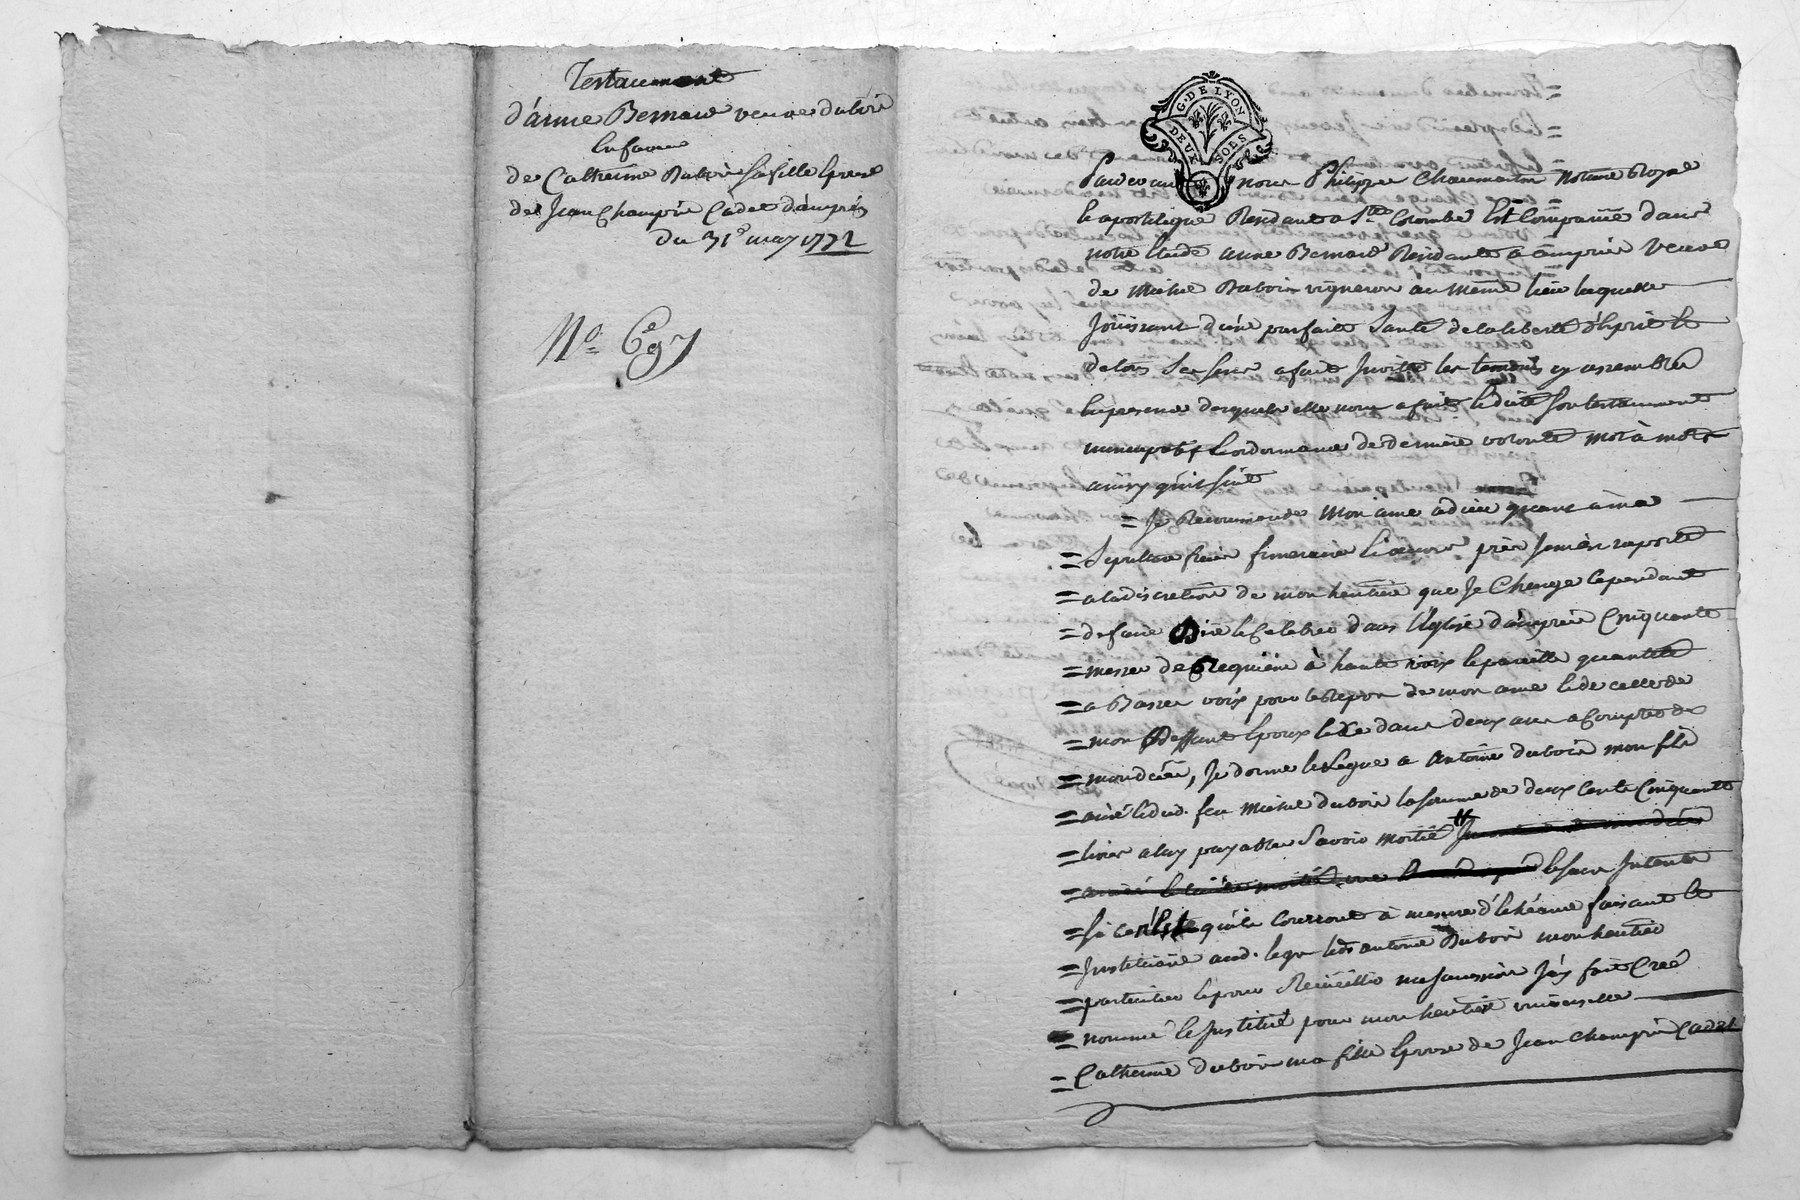 Testament
d'anne Bernard veuve dubois
en faveur
de Catherine Dubois sa fille Epouse
de Jean Champin Cadet d'ampuis
du 31e may 1772
No 697
G. DE LYON
DEUX SOLS
Pardevant nous Philippe Chaumartin Notaire Royal
et apostolique Residant a Ste Colombe Est Comparüe dans
notre Etude anne Bernard Residante a ampuis veuve
de Michel Dubois vigneron au même lieu laquelle
Joüissant d'une parfaite Santé de la liberté d'esprit et
de tous Ses Sens a fait Inviter les temoins cy assemblés
En presence desquels elle nous a fait et dicté Son testament
nuncupatif et ordonnance de derniere volonté mot à mots
ainsy qu'il suit
= Je Recommande Mon ame à dieu quant à ma
= Sepulture frais funeraire et oeuvres pies Je m'en raporte
= a la discretion de mon heritiere que Je Charge Cependant
= de faire Dire et Celebrer dans l'Eglise d'ampuis Cinquante
= messes de Requiem à haute voix et pareille quantité
= a Basses voix pour le Repos de mon ame et de celle de
= mon Deffunt Epoux et ce dans deux ans a Compter de
= mon décès, Je donne et Legue a Antoine dubois mon fils
= ainé et dud. feu Michel dubois la somme de deux Cents Cinquante
= livres a luy payable Savoir moitié
= et sans Interets
= Si ce n'est qu'ils Courront à mesure d'Echéance faisant et
= Instituant aud. legs led. antoine Dubois mon heritier
= particulier et pour Recueillir ma Succession J'ay fait Creé
= nommé et Institué pour mon heritiere universelle
= Catherine dubois ma fille Epouse de Jean Champin Cadet